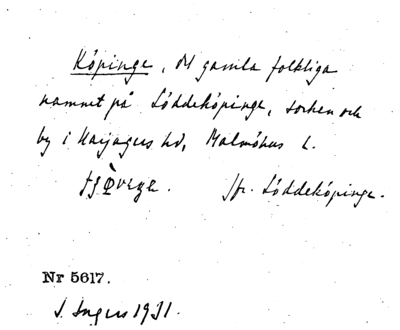 Köpinge, det gamla folkliga
namnet på Löddeköpinge, socken och
by i Harjagers hd, Malmöhus l.
Jfr. Löddeköpinge.
Nr 5617.
J. Ingers 1931.